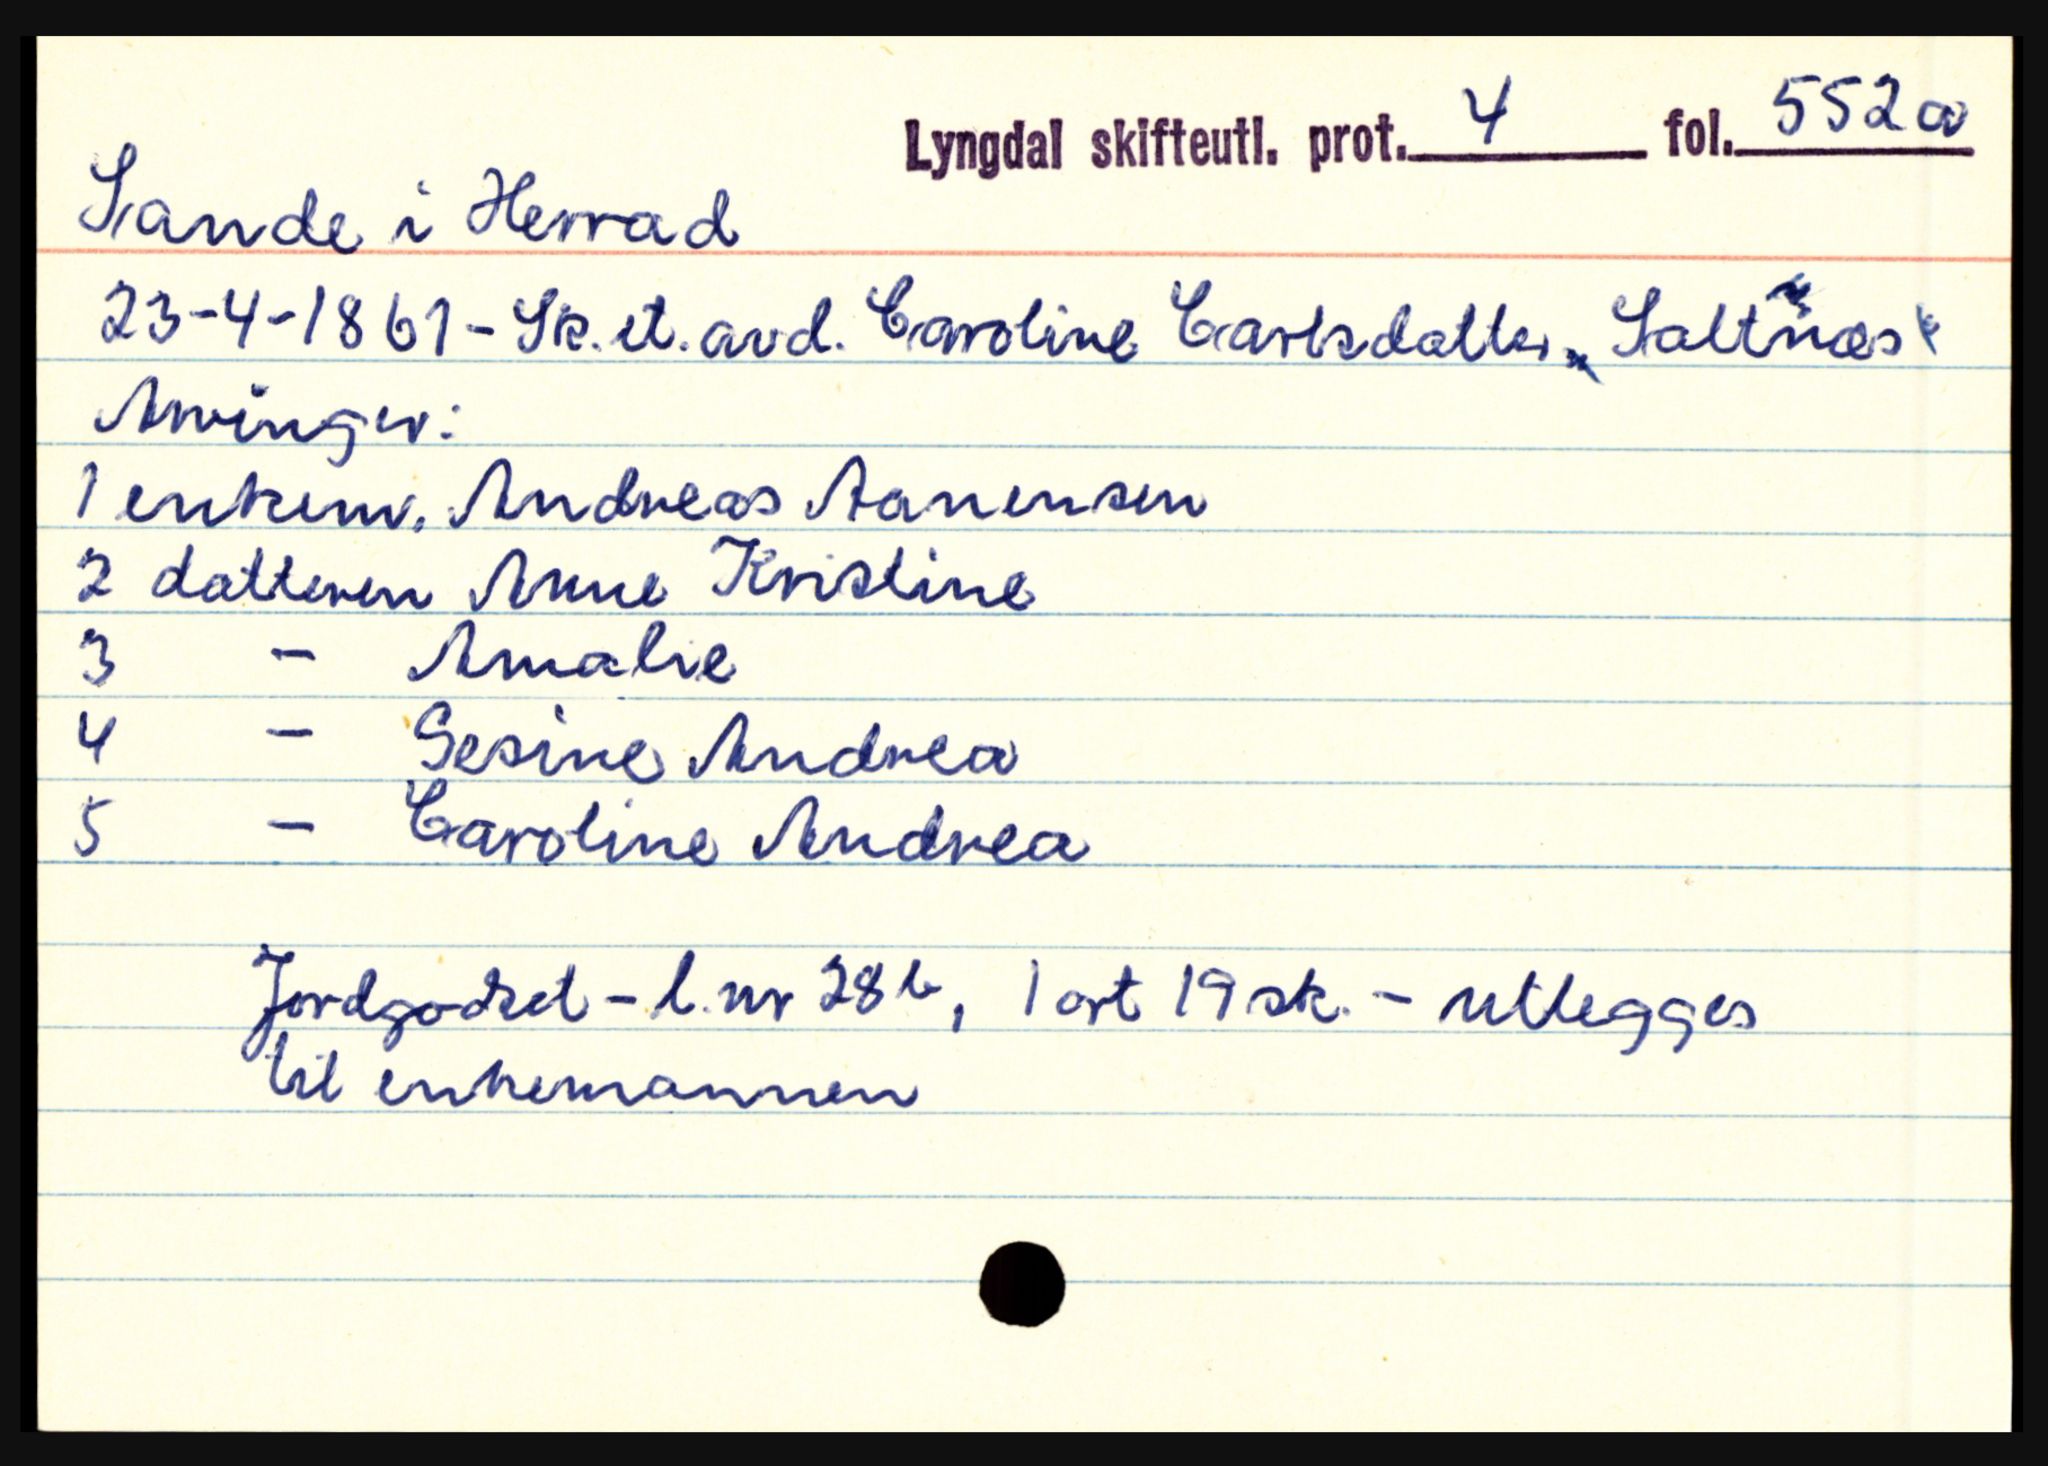 Lyngdal skifteutl. prot. 4 fol. 552a
Sande i Herrad
23-4-1861 - Sk. et. avd. Caroline Carlsdatter, Saltnæs
Arvinger:
1 enkem. Andreas Aanensen
2 datteren Anne Kristine
3 - Amalie
4 - Gesine Andrea
5 - Caroline Andrea
Jordgodset - l.nr 28b, 1 ort 19 sk. - utlegges
til enkemannen